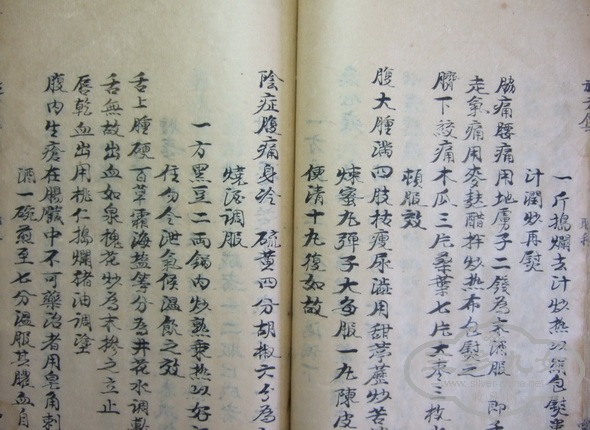 一斤搗爛去汁炒熱以絹包熨患
汁潤炒再熨
脇痛腰痛用地膚子二錢為末酒服 即
走氣痛用麥麩醋拌炒熱布包熨之
臍下絞痛木瓜三片桑葉七片大棗三枚
頓服效
腹大腫滿四肢枯瘦尿澁用甜葶藶炒
煉蜜丸彈子大每服一丸陳皮
便清十丸復如故
陰症腹痛身冷 硫黄四分胡椒六分為
燒酒調服
一方黑豆二両鍋内炒熟乘熱以好
住勿令泄氣候溫飲之效
舌上腫硬百草霜海盐等分為末井花水調
舌無故出血如泉槐花炒為末摻之立止
唇乾血出用桃仁搗爛猪油調塗
腹内生瘡在腸臟中不可藥治者用皂角刺
酒一碗煎至七分温服其膿血自